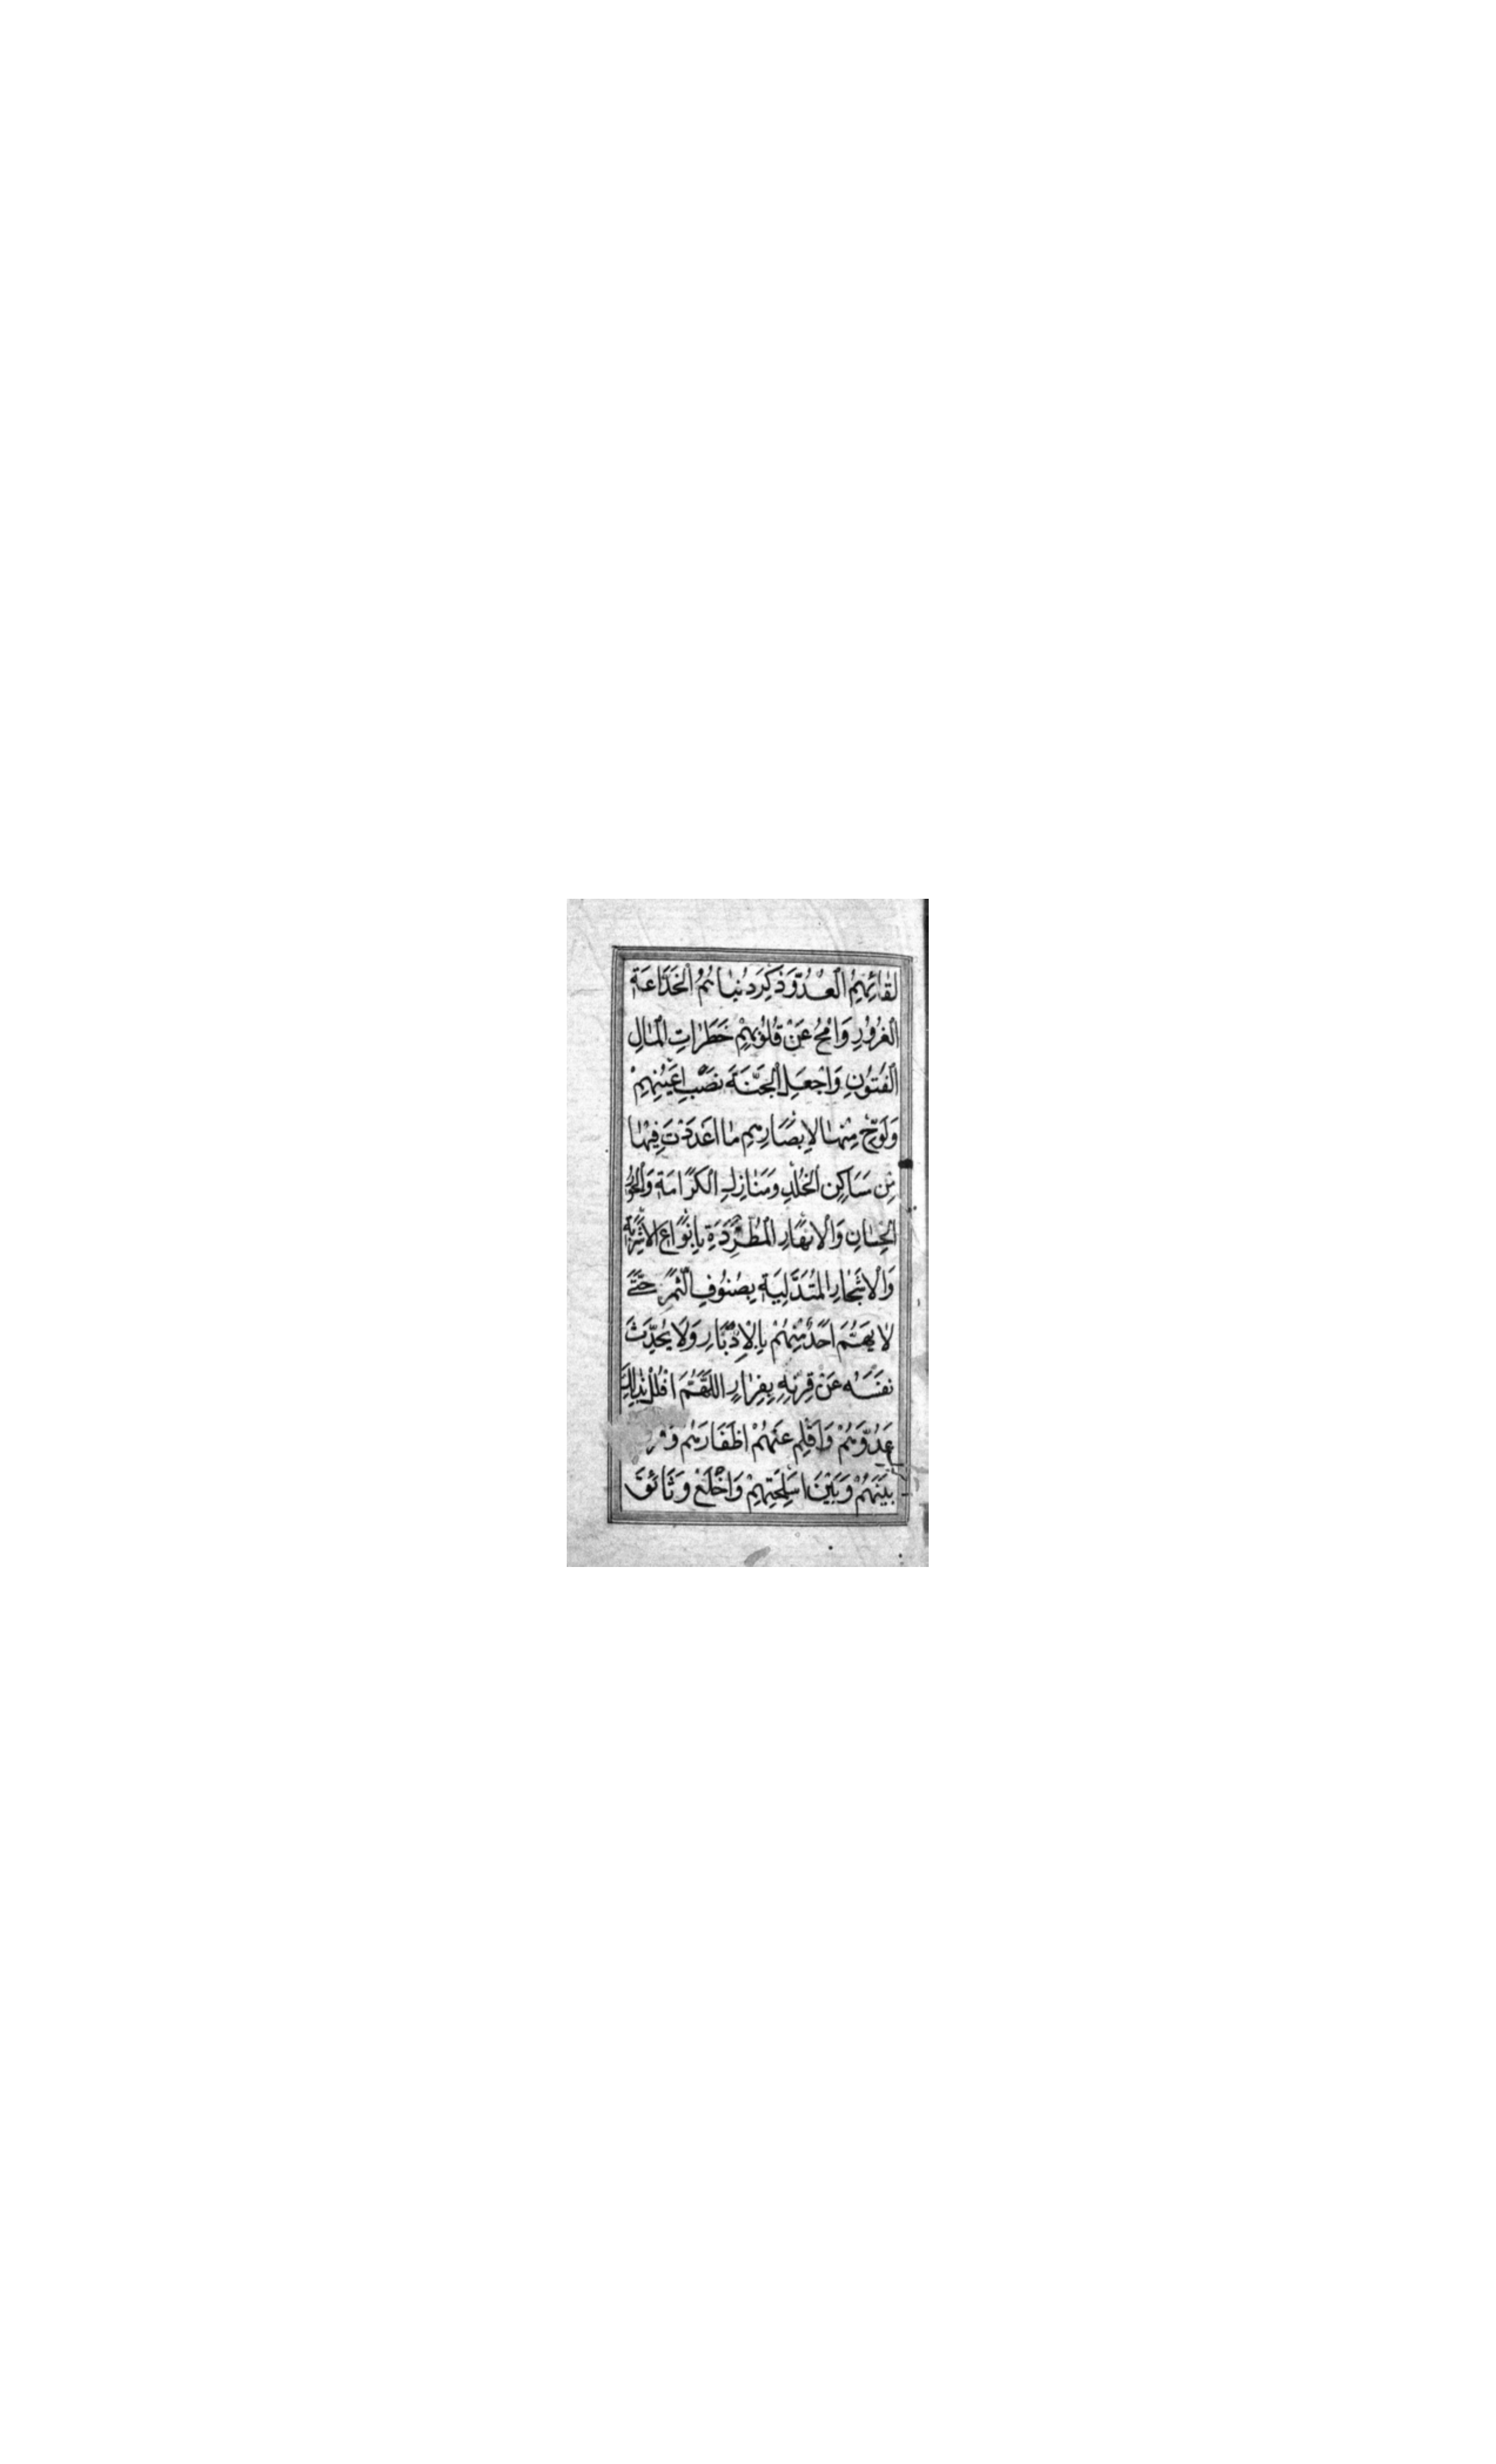 لِقَائِهِمُ الْعَدُوَّ ذِكْرَ دُنْيَاهُمُ الْخَدَّاعَةِ
الْغَرُورِ وَامْحُ عَنْ قُلُوبِهِمْ خَطَرَاتِ الْمَالِ
الْفَتُونِ وَاجْعَلِ الْجَنَّةَ نَصْبَ اَعْيُنِهِمْ
وَلَوِّحْ مِنْهَا لِاَبْصَارِهِمْ مَا اَعْدَدْتَ فِيهَا
مِنْ مَسَاكِنِ الْخُلْدِ وَمَنَازِلِ الْكَرَامَةِ وَالْحُورِ
الْحِسَانِ وَالْاَنْهَارِ الْمُطَّرِدَةِ بِاَنْوَاعِ الْاَشْرِبَةِ
وَالْاَشْجَارِ الْمُتَدَلِّيَةِ بِصُنُوفِ الثَّمَرِ حَتَّى
لَا يَهُمَّ اَحَدٌ مِنْهُمْ بِالْاِدْبَارِ وَلَا يُحَدِّثَ
نَفْسَهُ عَنْ قِرْنِهِ بِفِرَارٍ اللَّهُمَّ افْلُلْ بِذَلِكَ
عَدُوَّهُمْ وَاقْلِمْ عَنْهُمْ اَظْفَارَهُمْ
بَيْنَهُمْ وَبَيْنَ اَسْلِحَتِهِمْ وَاخْلَعْ وَثَائِقَ